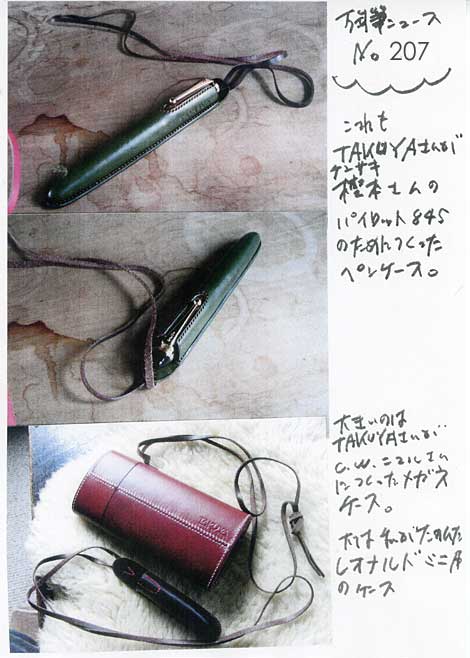 万年筆ニュース
No.207
これも
TAKUYAさんが
さんの
パイロット845
のためにつくった
ペンケース。
大きいのは
TAKUYAさんが
C.W.ニコルさん
につくったメガネ
ケース。
私がたのんだ
レオナルドミニ用
のケース